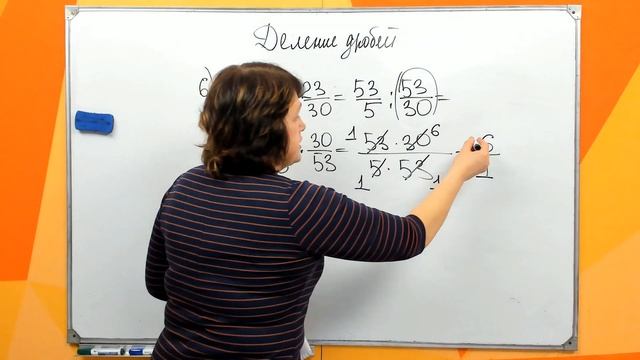 Деление дробей
6) 23/30 = 53/5 : (53/30) =
· 30/53 = 1 53 · 30 6 / 5 · 53 1 1 = 6/1